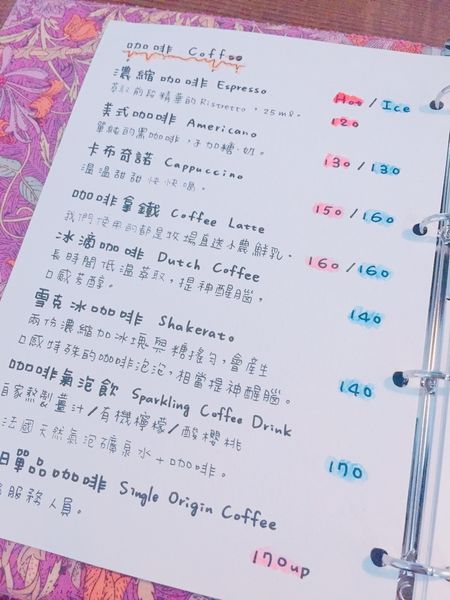 咖啡 Coffee
Hot / Ice
濃縮咖啡 Espresso
萃取前段精華的Ristretto，25ml。
120
美式咖啡 Americano
單純的黑咖啡，不加糖、奶。
130 / 130
卡布奇諾 Cappuccino
溫溫甜甜快快喝。
150 / 160
咖啡拿鐵 Coffee Latte
我們使用的都是牧場直送小農鮮乳。
160 / 160
冰滴咖啡 Dutch Coffee
長時間低溫萃取，提神醒腦，
口感芳醇。
140
雪克冰咖啡 Shakerato
兩份濃縮加冰塊與糖搖勻，會產生
口感特殊的咖啡泡泡，相當提神醒腦。
140
咖啡氣泡飲 Sparkling Coffee Drink
自家熬製薑汁/有機檸檬/酸櫻桃
法國天然氣泡礦泉水+咖啡。
170
日單品咖啡 Single Origin Coffee
服務人員。
170up